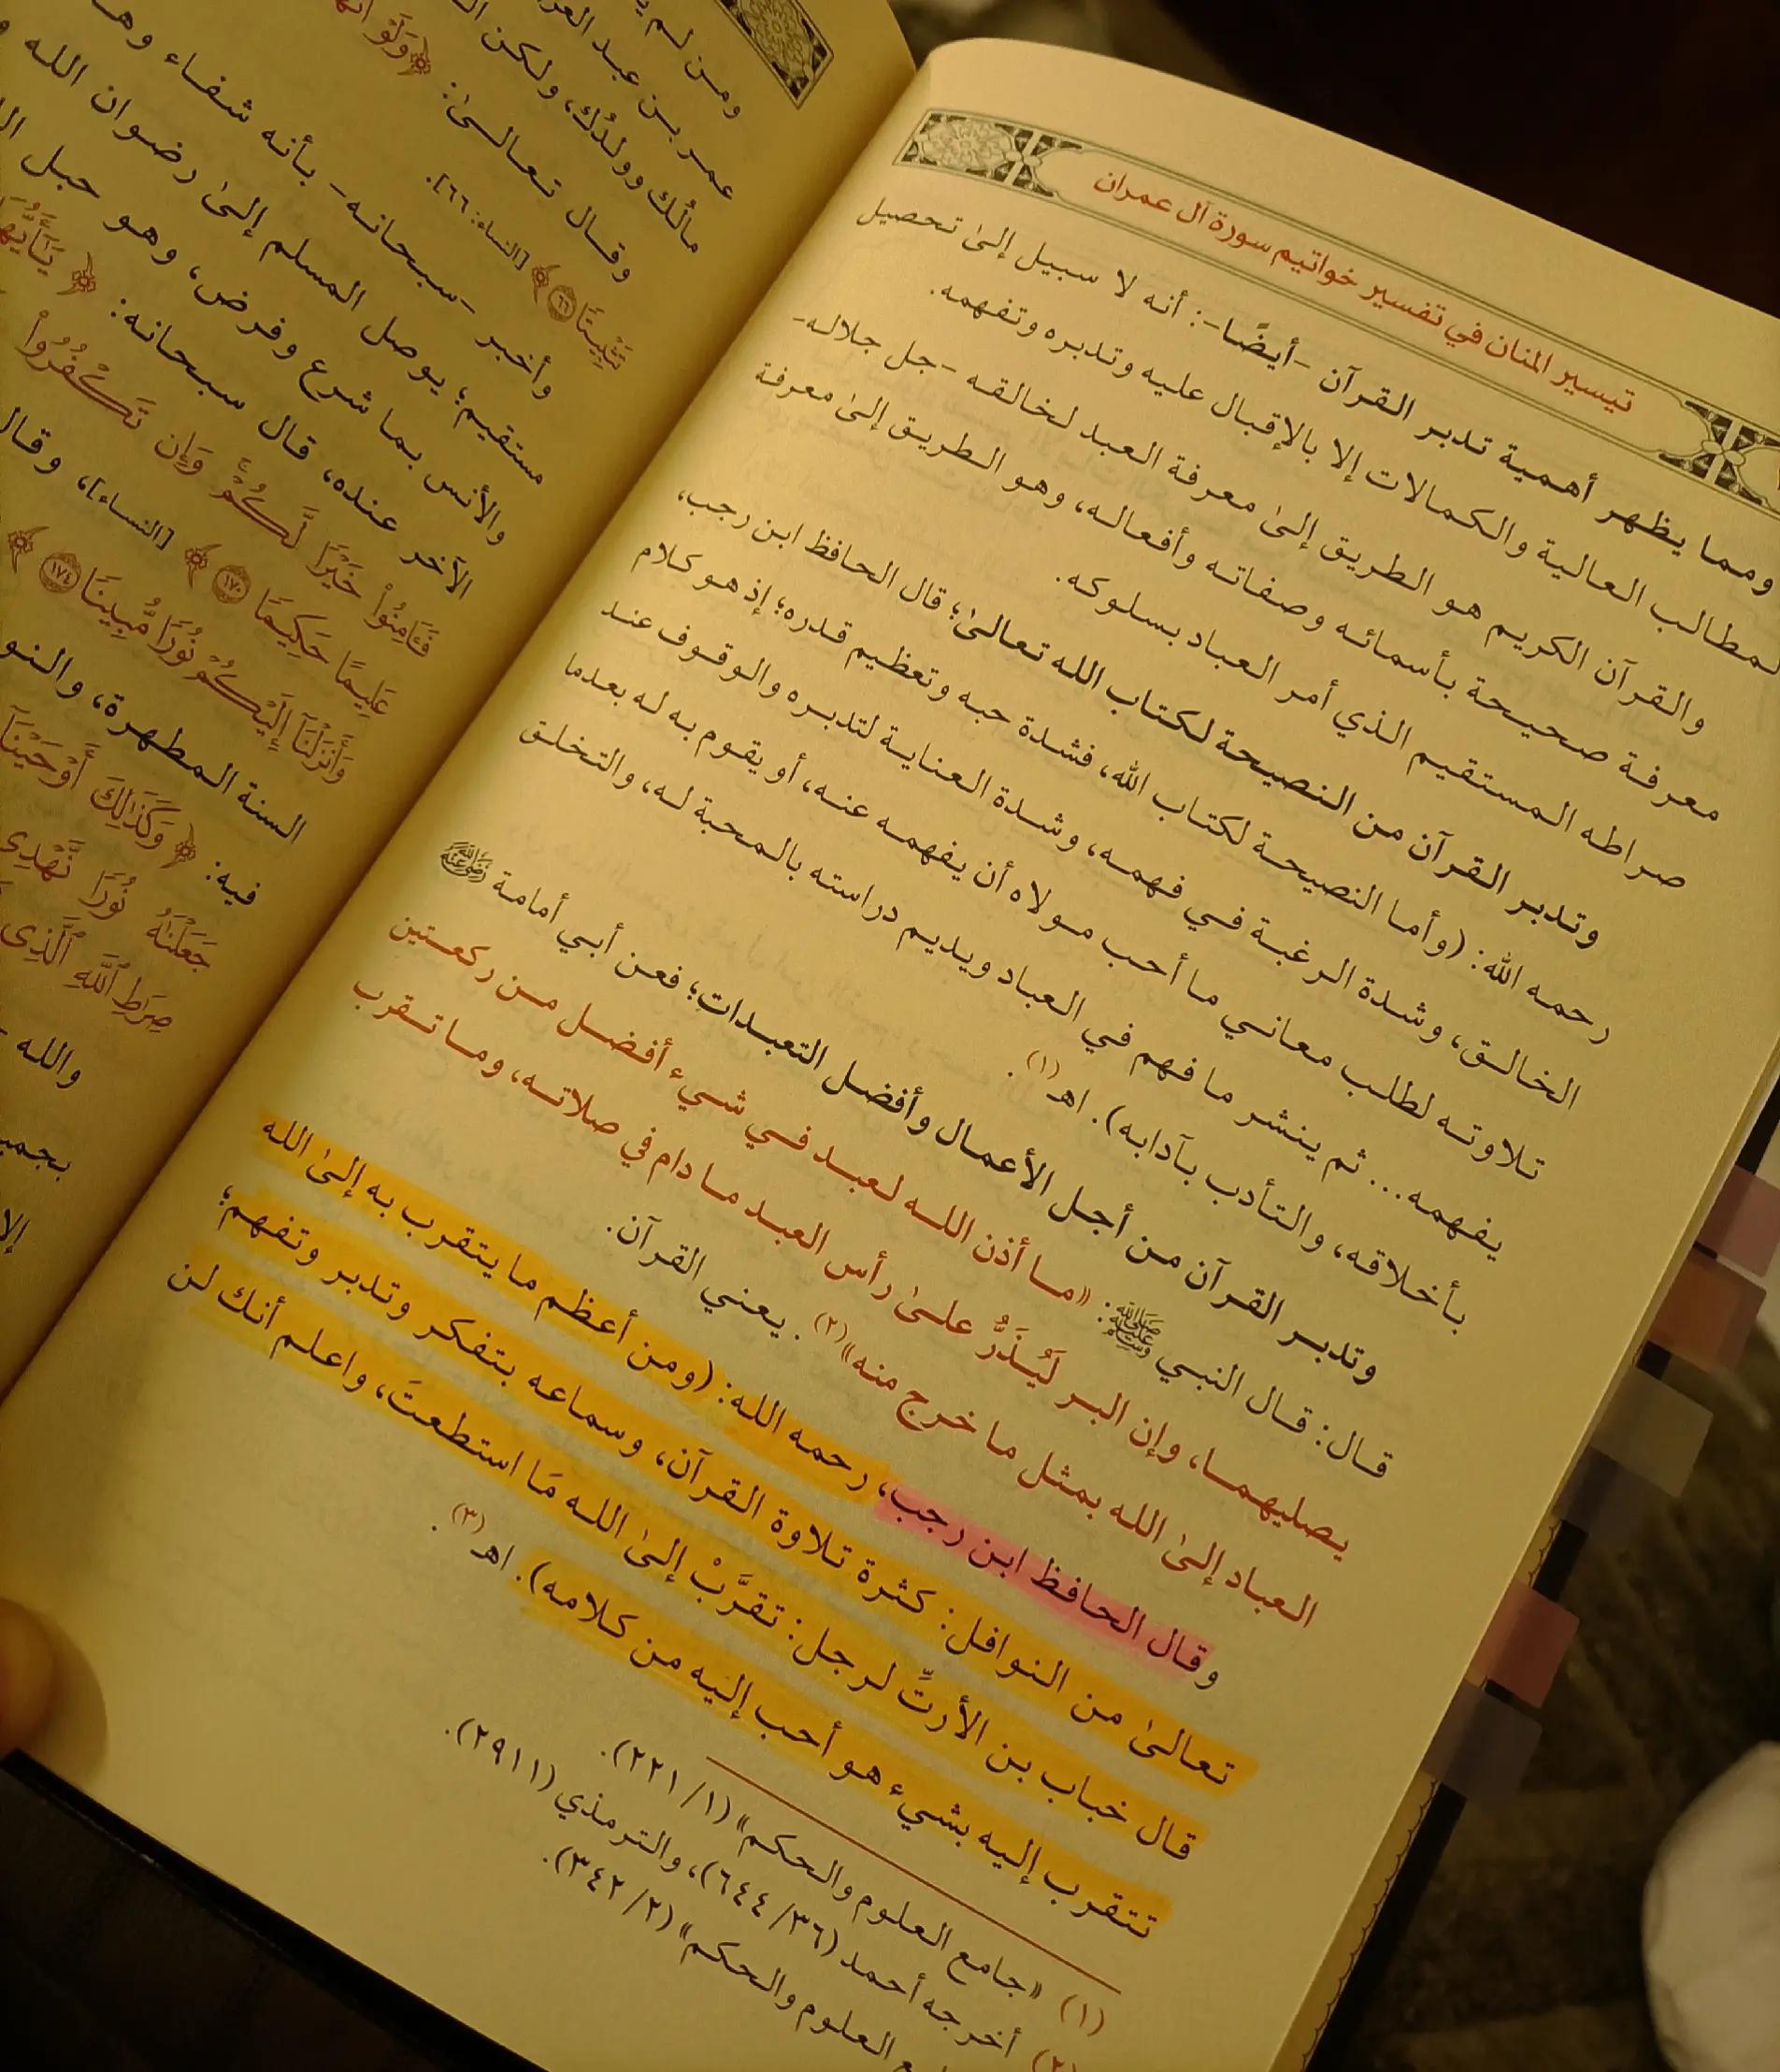 تيسير المنان في تفسير خواتيم سورة آل عمران
ومما يظهر أهمية تدبر القرآن -أيضًا-: أنه لا سبيل إلىٰ تحصيل
المطالب العالية والكمالات إلا بالإقبال عليه وتدبره وتفهمه.
والقرآن الكريم هو الطريق إلىٰ معرفة العبد لخالقه -جل جلاله-
معرفة صحيحة بأسمائه وصفاته وأفعاله، وهو الطريق إلىٰ معرفة
صراطه المستقيم الذي أمر العباد بسلوكه.
وتدبر القرآن من النصيحة لكتاب الله تعالىٰ؛ قال الحافظ ابن رجب،
رحمه الله: (وأما النصيحة لكتاب الله، فشدة حبه وتعظيم قدره؛ إذ هو كلام
الخالق، وشدة الرغبة في فهمه، وشدة العناية لتدبره والوقوف عند
تلاوته لطلب معاني ما أحب مولاه أن يفهمه عنه، أو يقوم به له بعدما
يفهمه... ثم ينشر ما فهم في العباد ويديم دراسته بالمحبة له، والتخلق
بأخلاقه، والتأدب بآدابه). اهـ(١).
وتدبر القرآن من أجل الأعمال وأفضل التعبدات؛ فعن أبي أمامة رضي الله عنه
قال: قال النبي ﷺ: «ما أذن الله لعبد في شيء أفضل من ركعتين
يصليهما، وإن البر لَيُذَرُّ علىٰ رأس العبد ما دام في صلاته، وما تقرب
العباد إلىٰ الله بمثل ما خرج منه»(٢). يعني القرآن.
وقال الحافظ ابن رجب، رحمه الله: (ومن أعظم ما يتقرب به إلىٰ الله
تعالىٰ من النوافل: كثرة تلاوة القرآن، وسماعه بتفكر وتدبر وتفهم؛
قال خباب بن الأرتِّ لرجل: تقرَّبْ إلىٰ الله مَا استطعتَ، واعلم أنك لن
تتقرب إليه بشيء هو أحب إليه من كلامه). اهـ(٣).
(١) «جامع العلوم والحكم» (١/ ٢٢١).
(٢) أخرجه أحمد (٣٦/ ٦٤٤)، والترمذي (٢٩١١).
العلوم والحكم» (٢/ ٣٤٢).
ومن لم
عمر بن عبد
مالُك وولدُك، ولكن
وقال تعالىٰ: ﴿وَلَوْ
تَثْبِيتًا ٦٦﴾ [النساء: ٦٦].
وأخبر -سبحانه- بأنه شفاء
مستقيم؛ يوصل المسلم إلىٰ رضوان الله
والأنس بما شرع وفرض، وهو حبل
الآخر عنده، قال سبحانه: ﴿يَٰٓأَيُّهَا
فَـَٔامِنُوا۟ خَيْرًا لَّكُمْ وَإِن تَكْفُرُوا۟
عَلِيمًا حَكِيمًا ١٧٠﴾ [النساء]، وقال
وَأَنزَلْنَآ إِلَيْكُمْ نُورًا مُّبِينًا ١٧٤﴾
السنة المطهرة، والنو
فيه: ﴿وَكَذَٰلِكَ أَوْحَيْنَآ
جَعَلْنَٰهُ نُورًا نَّهْدِى
صِرَٰطِ ٱللَّهِ ٱلَّذِى
والله
بجميـ
إلا